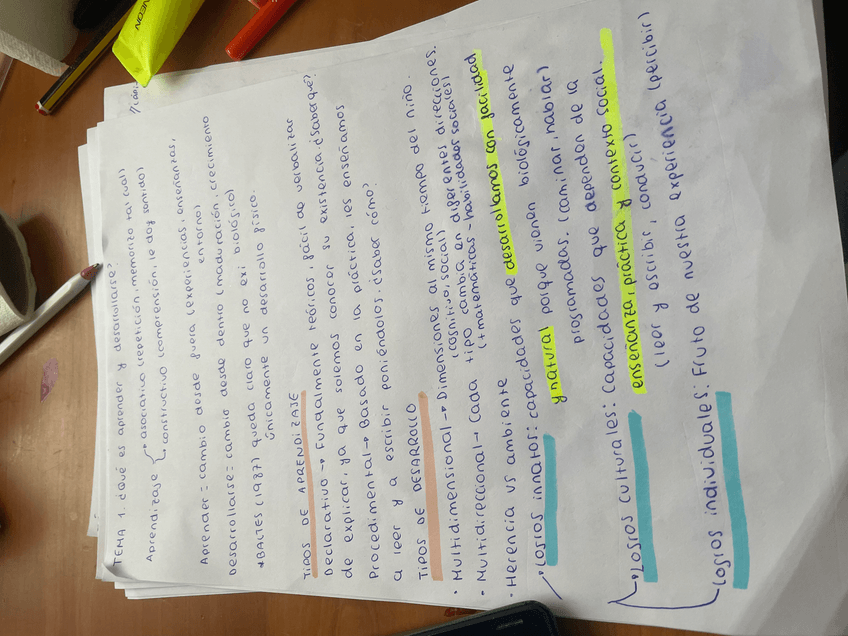 TEMA 1. ¿Qué es aprender y desarrollarse?
Aprendizaje → asociativo (repetición, memorizo tal cual)
→ constructivo (comprensión, le doy sentido)
Aprender = cambio desde fuera (experiencias, enseñanzas,
entorno)
Desarrollarse = cambio desde dentro (maduración, crecimiento
biológico)
* BALTES (1987) queda claro que no exi
únicamente un desarrollo físico.
TIPOS DE APRENDIZAJE
Declarativo → Fundalmente teóricos, fácil de verbalizar
de explicar, ya que solemos conocer su existencia ¿Saber qué?
Procedimental → Basado en la práctica, les enseñamos
a leer y a escribir poniéndolos. ¿Saber cómo?
TIPOS DE DESARROLLO
• Multidimensional → Dimensiones al mismo tiempo del niño.
(cognitivo, social)
• Multidireccional → Cada tipo cambia en diferentes direcciones.
(+ matemáticas - habilidades sociales)
• Herencia vs ambiente
→ Logros innatos: capacidades que desarrollamos con facilidad
y natural porque vienen biológicamente
programadas. (caminar, hablar)
→ Logros culturales: Capacidades que dependen de la
enseñanza, práctica y contexto social.
(leer y escribir, conducir)
Logros individuales: Fruto de nuestra experiencia (percibir)
NEON